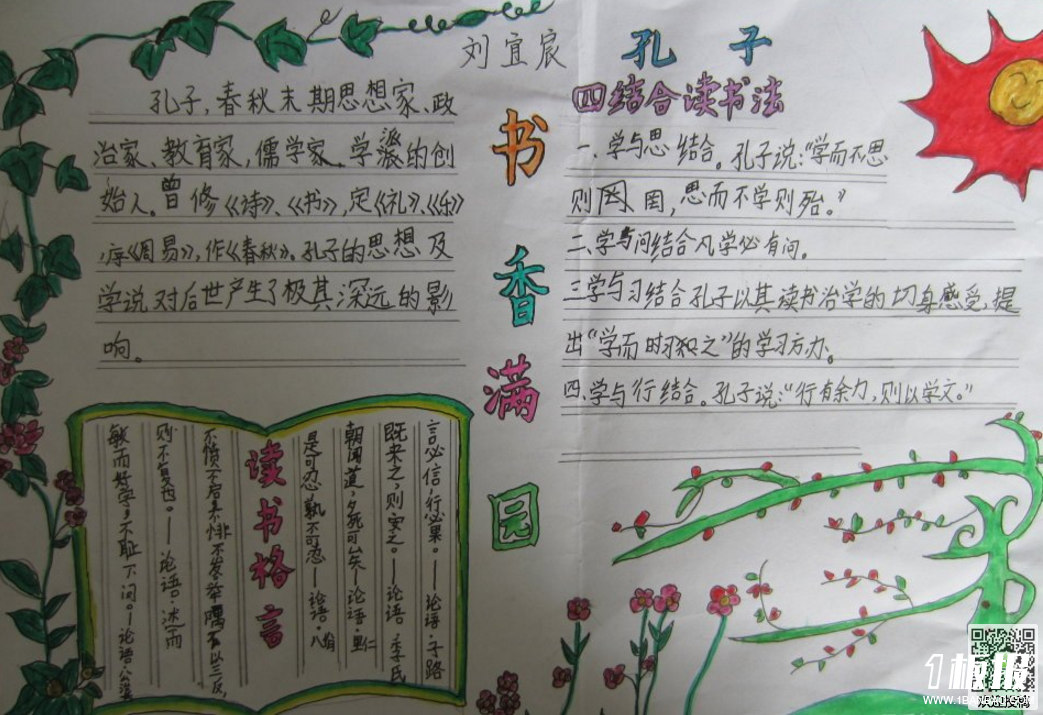 刘宜宸
孔子
四结合读书法
孔子，春秋末期思想家、政
治家、教育家，儒学家、学派的创
始人。曾修《诗》、《书》，定《礼》、《乐》
，序《周易》，作《春秋》。孔子的思想及
学说对后世产生了极其深远的影
响。
书香满园
一、学与思结合。孔子说：“学而不思
则罔，思而不学则殆。”
二、学与问结合凡学必有问。
三学与习结合孔子以其读书治学的切身感受，提
出“学而时习之”的学习方办。
四、学与行结合。孔子说：“行有余力，则以学文。”
言必信，行必果。——论语·子路
既来之，则安之。——论语·季氏
朝闻道，夕死可矣—论语·里仁
是可忍孰不可忍—论语·八佾
读书格言
不愤不启，不悱不发举隅不以三反，
则不复也。——论语·述而
敏而好学，不耻下问。—论语·公冶
1板报
www.1banbao.com